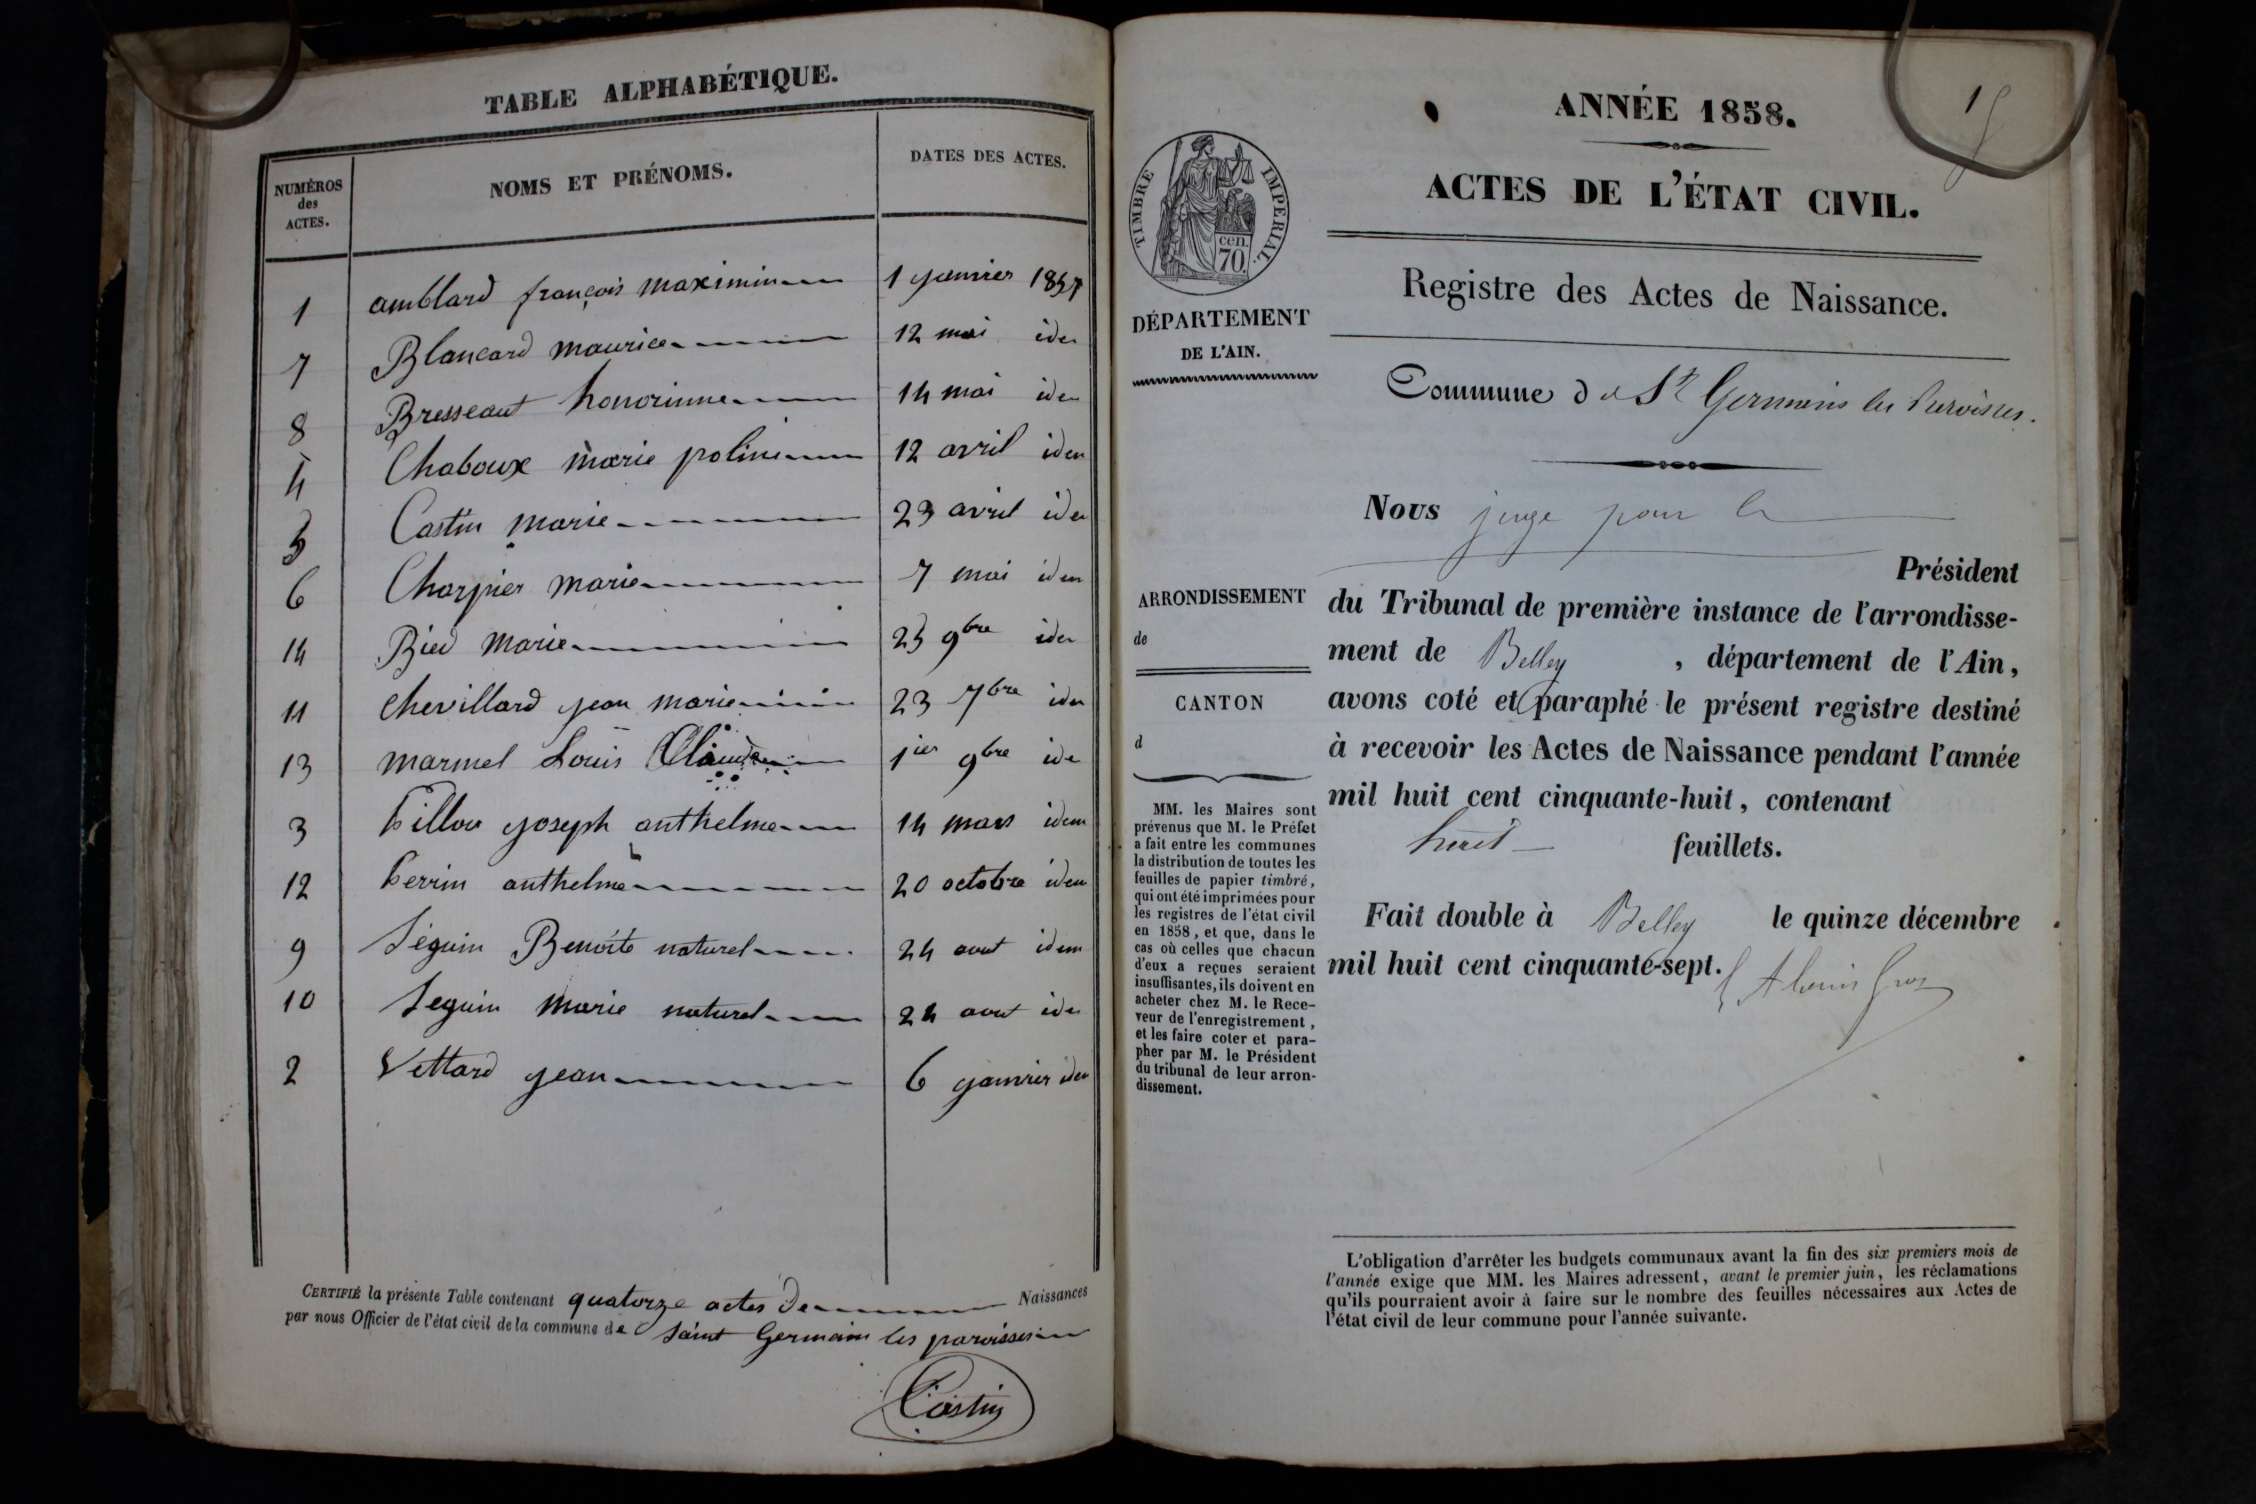 TABLE ALPHABÉTIQUE.
NUMÉROS des ACTES. NOMS ET PRÉNOMS. DATES DES ACTES.
1 amblard françois maximin 1 janvier 1857
7 Blancard maurice 12 mai idem
8 Bresseaut honorinne 14 mai idem
4 Chaboux marie poline 12 avril idem
5 Castin marie 23 avril idem
6 Charpier marie 7 mai idem
14 Bied Marie 25 9bre idem
11 Chevillard jean marie 23 7bre idem
13 marmel Louis Claude 1ier 9bre idem
3 Pillou joseph anthelme 14 mars idem
12 Perrin anthelme 20 octobre idem
9 Séguin Benoite naturel 24 aout idem
10 Seguin Marie naturel 24 aout idem
2 Vettard jean 6 janvier idem
CERTIFIÉ la présente Table contenant quatorze actes de Naissances
par nous Officier de l'état civil de la commune de Saint Germain les paroisses
Castin
15
ANNÉE 1858.
ACTES DE L'ÉTAT CIVIL.
TIMBRE IMPERIAL.
cen.
70.
Registre des Actes de Naissance.
DÉPARTEMENT
DE L'AIN.
Commune de St Germain les Paroisses.
Nous juge pour le
Président
ARRONDISSEMENT
de
CANTON
d
du Tribunal de première instance de l'arrondisse-
ment de Belley, département de l'Ain,
avons coté et paraphé le présent registre destiné
à recevoir les Actes de Naissance pendant l'année
mil huit cent cinquante-huit, contenant
huit feuillets.
Fait double à Belley le quinze décembre
mil huit cent cinquante-sept.
MM. les Maires sont
prévenus que M. le Préfet
a fait entre les communes
la distribution de toutes les
feuilles de papier timbré,
qui ont été imprimées pour
les registres de l'état civil
en 1858, et que, dans le
cas où celles que chacun
d'eux a reçues seraient
insuffisantes, ils doivent en
acheter chez M. le Rece-
veur de l'enregistrement,
et les faire coter et para-
pher par M. le Président
du tribunal de leur arron-
dissement.
L'obligation d'arrêter les budgets communaux avant la fin des six premiers mois de
l'année exige que MM. les Maires adressent, avant le premier juin, les réclamations
qu'ils pourraient avoir à faire sur le nombre des feuilles nécessaires aux Actes de
l'état civil de leur commune pour l'année suivante.